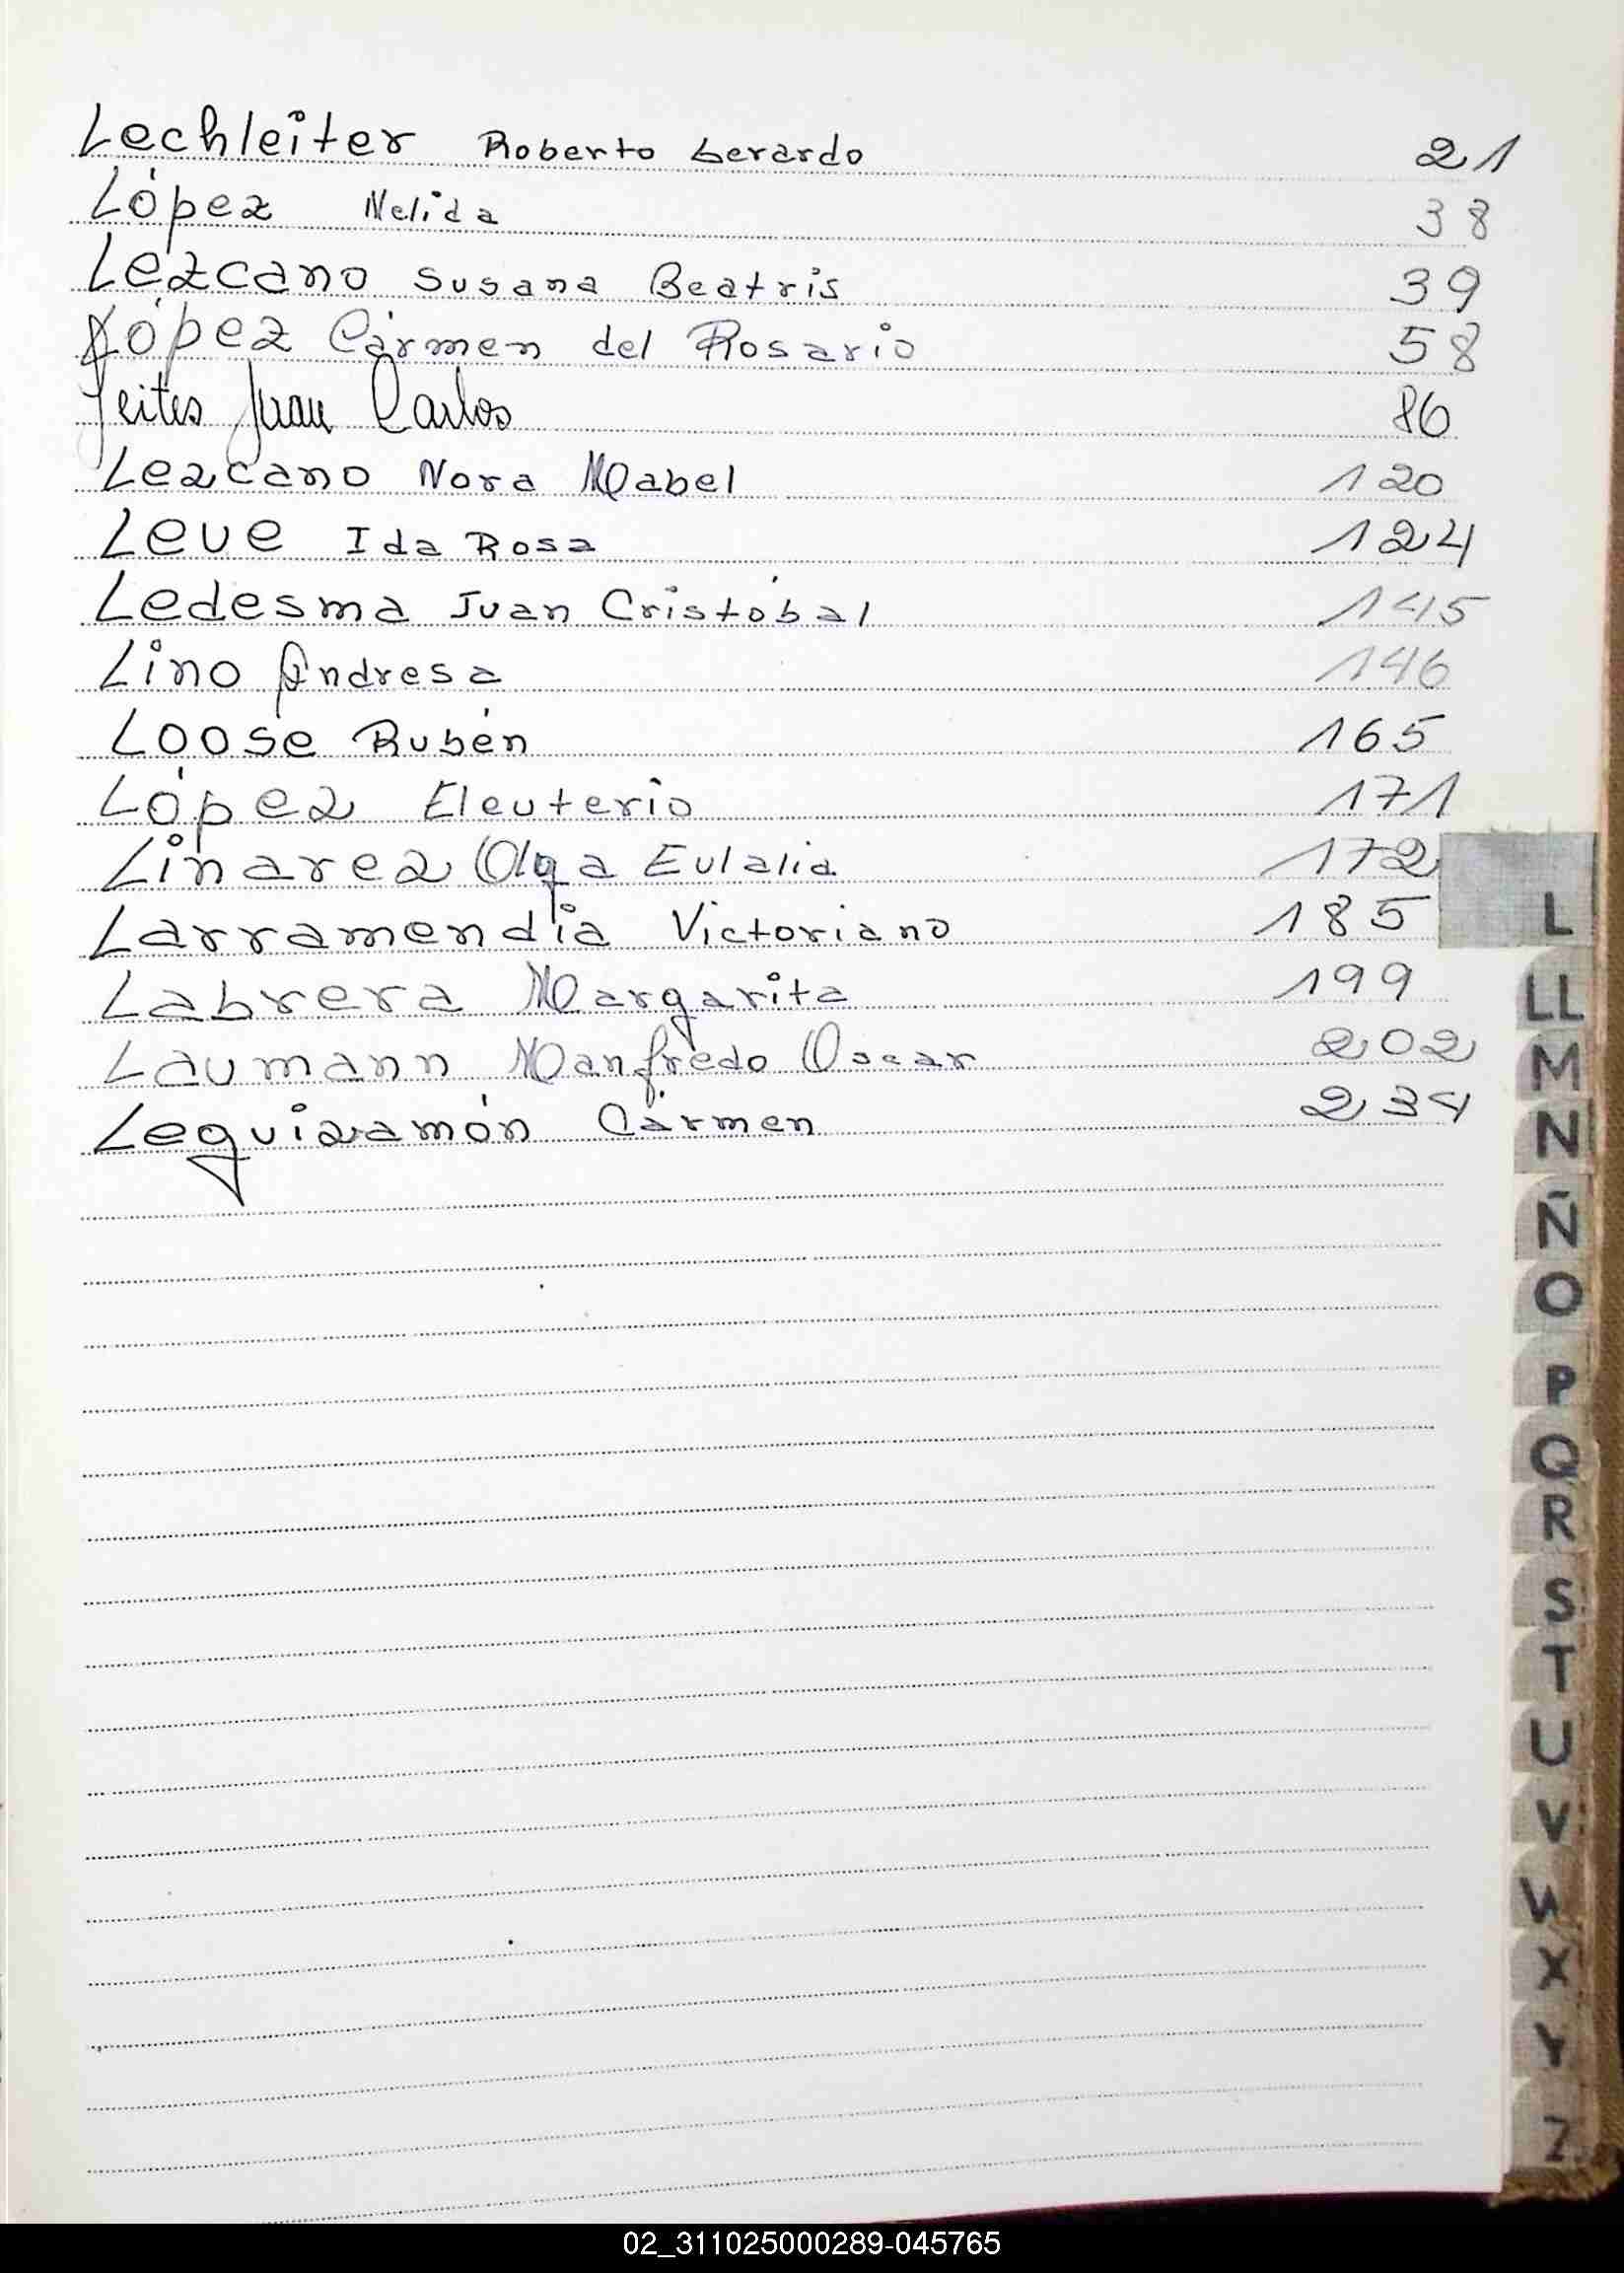 Lechleiter Roberto Gerardo 21
López Nelida 38
Lezcano Susana Beatris 39
López Cármen del Rosario 58
Leites Juan Carlos 86
Lezcano Nora Mabel 120
Leve Ida Rosa 124
Ledesma Juan Cristóbal 145
Lino Andresa 146
Loose Rubén 165
López Eleuterio 171
Linarez Olga Eulalia 172
Larramendia Victoriano 185
Labrera Margarita 199
Laumann Manfredo Oscar 202
Leguizamón Cármen 234
L
LL
M
N
Ñ
O
P
Q
R
S
T
U
V
W
X
Y
Z
02_311025000289-045765